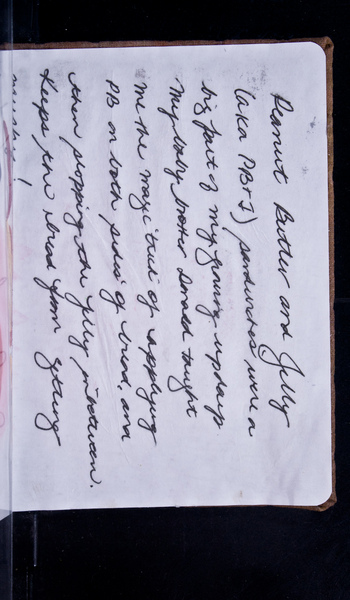 Peanut Butter and Jelly
(aka PB+J) sandwiches were a
big part of my growing up days
My baby brother Donald taught
me the magic trick of applying
PB on both sides of bread, and
then plopping the jelly inbetween.
Keeps the bread from getting
mushy!